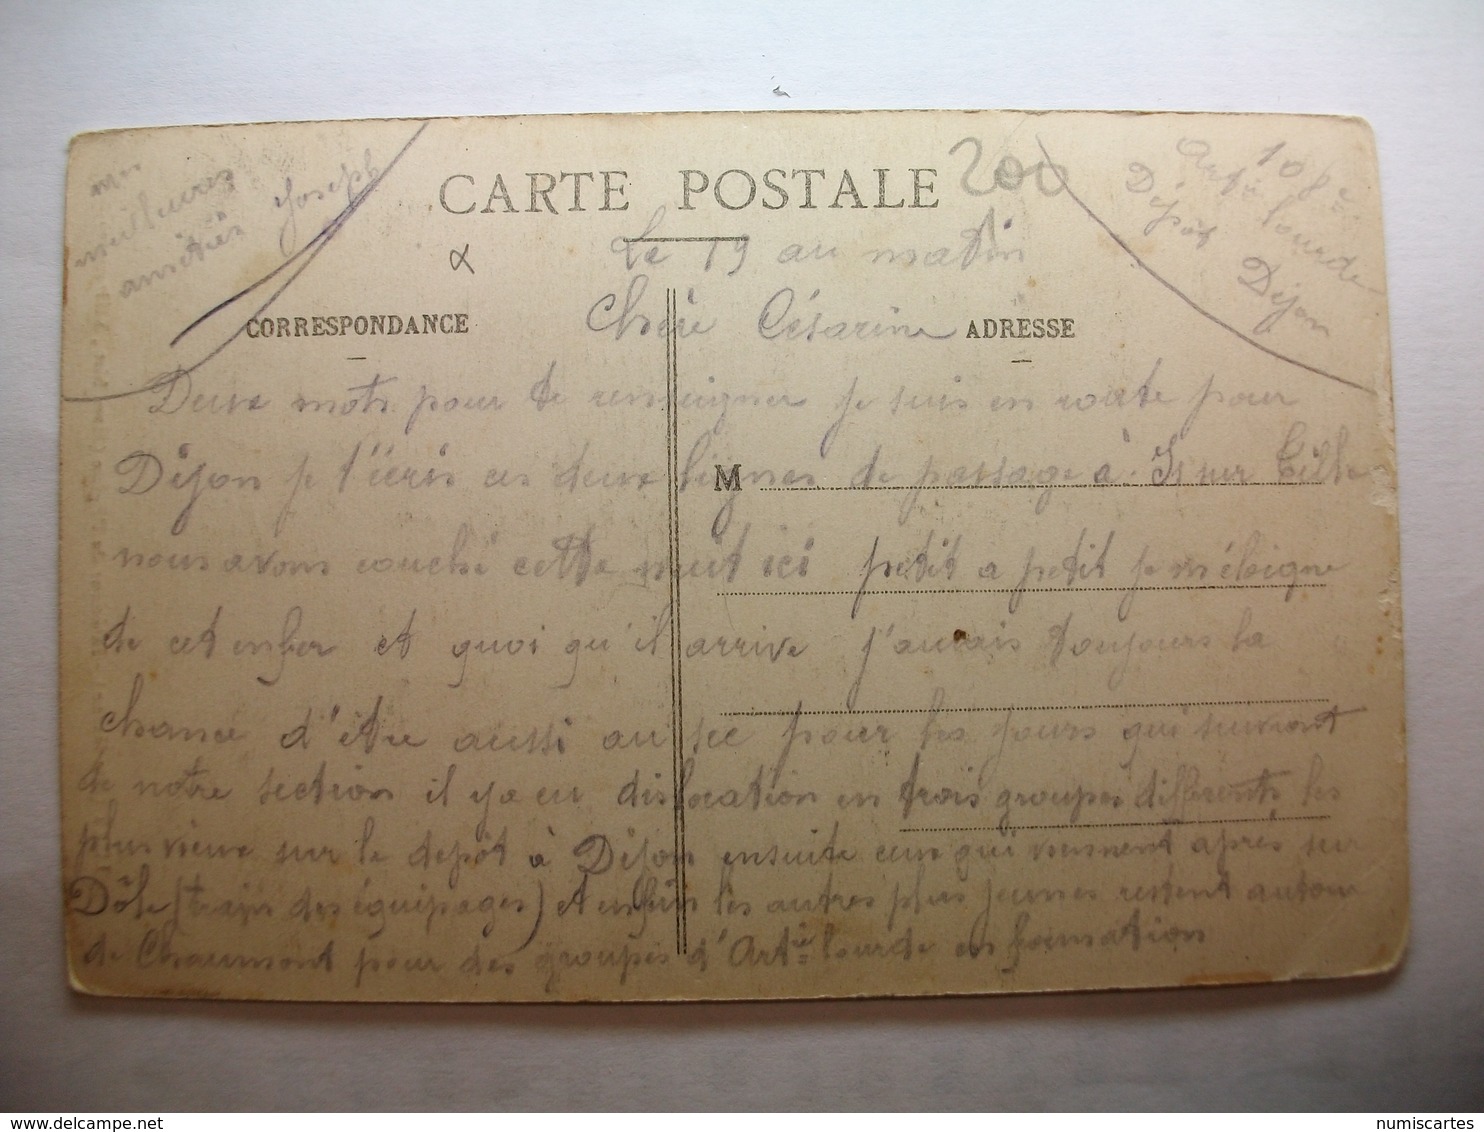 CARTE POSTALE
200
108e
Artie lourde
Dépôt Dijon
Le 19 au matin
CORRESPONDANCE
ADRESSE
M
Chère Césarine
Deux mots pour te renseigner je suis en route pour
Dijon je t'écris ces deux lignes de passage à Is sur Tille
nous avons couché cette nuit ici petit a petit je m'éloigne
de cet enfer et quoi qu'il arrive j'aurais toujours la
chance d'être aussi au sec pour les jours qui suivront
de notre section il y a eu dislocation en trois groupes différents les
plus vieux sur le depôt à Dijon ensuite ceux qui viennent après sur
Dôle (train des équipages) et enfin les autres plus jeunes restent autour
de Chaumont pour des groupes d'Artie lourde en formation
mes
meilleures
amitiés Joseph
numiscartes
www.delcampe.net